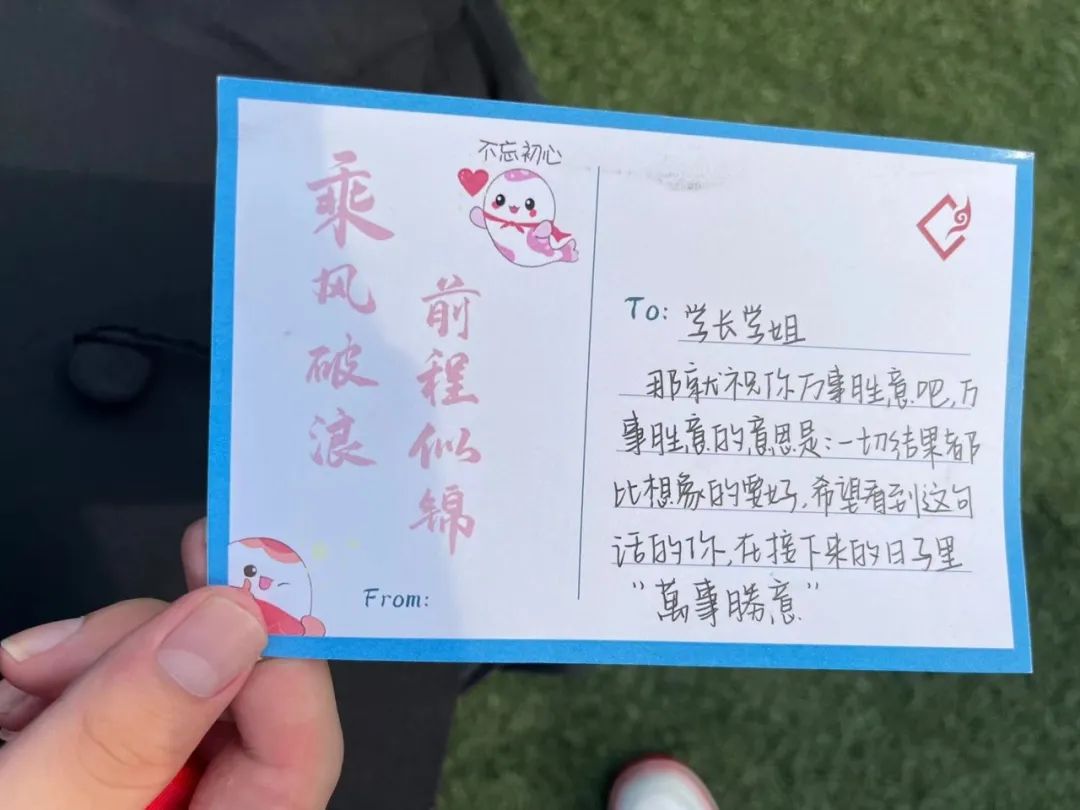 不忘初心
乘风破浪
前程似锦
From:
To: 学长学姐
那就祝你万事胜意吧,万
事胜意的意思是:一切结果都
比想象的要好,希望看到这句
话的你,在接下来的日子里
"萬事勝意"